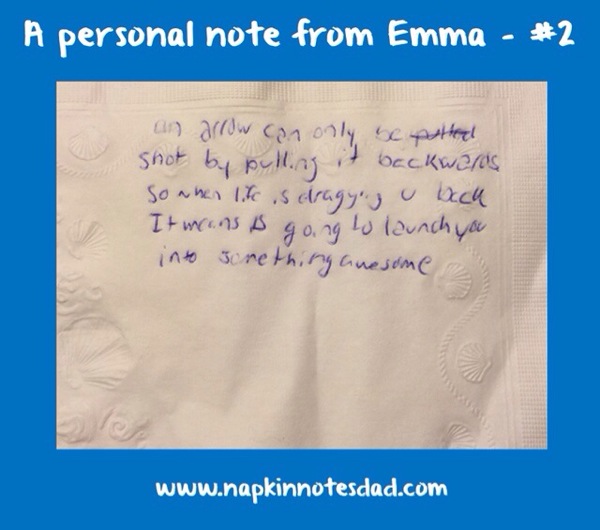 A personal note from Emma - #2
an arrow can only be pulled
shot by pulling it backwards
so when life is dragging u back
It means is going to launch you
into something awesome
www.napkinnotesdad.com